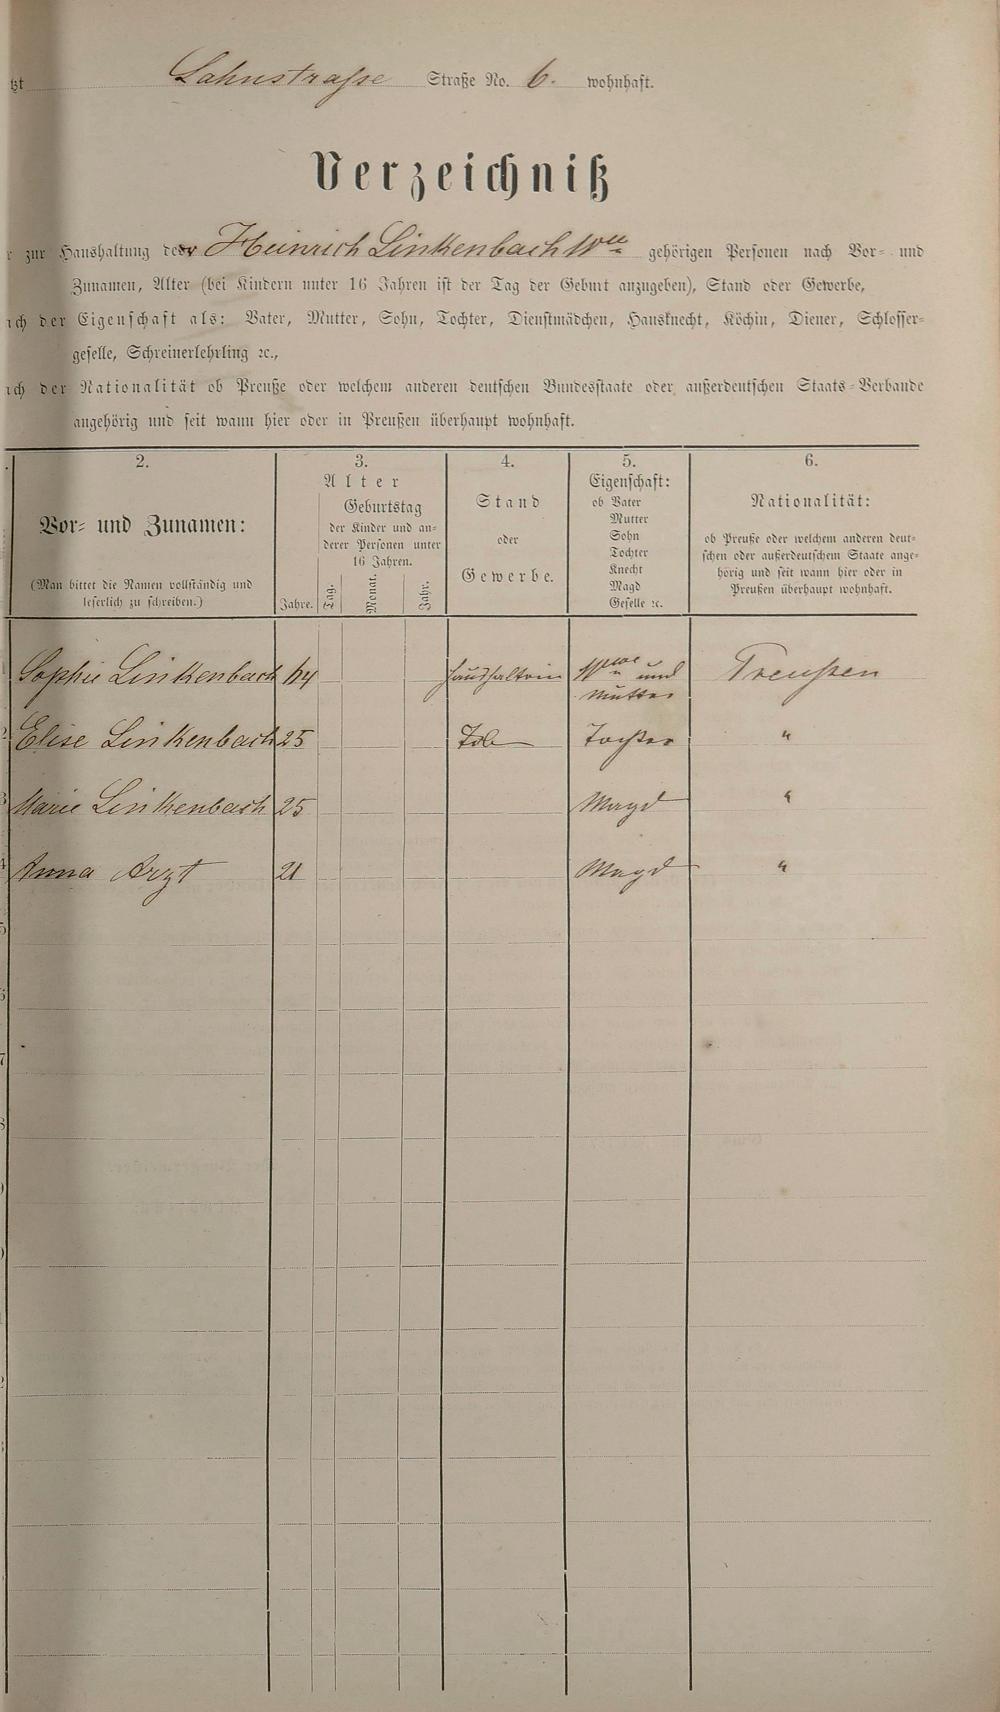 tzt Lahnstraße Straße No. 6. wohnhaft.
Verzeichniß
r zur Haushaltung der Heinrich Linkenbach Wwe gehörigen Personen nach Vor- und
Zunamen, Alter (bei Kindern unter 16 Jahren ist der Tag der Geburt anzugeben), Stand oder Gewerbe,
ach der Eigenschaft als: Vater, Mutter, Sohn, Tochter, Dienstmädchen, Hausknecht, Köchin, Diener, Schlosser-
geselle, Schreinerlehrling ꝛc.,
ach der Nationalität ob Preuße oder welchem anderen deutschen Bundesstaate oder außerdeutschen Staats-Verbande
angehörig und seit wann hier oder in Preußen überhaupt wohnhaft.
2.
Vor- und Zunamen:
(Man bittet die Namen vollständig und
leserlich zu schreiben.)
3.
Alter
Geburtstag
der Kinder und an-
derer Personen unter
16 Jahren.
Jahre. Tag. Monat. Jahr.
4.
Stand
oder
Gewerbe.
5.
Eigenschaft:
ob Vater
Mutter
Sohn
Tochter
Knecht
Magd
Geselle ꝛc.
6.
Nationalität:
ob Preuße oder welchem anderen deut-
schen oder außerdeutschem Staate ange-
hörig und seit wann hier oder in
Preußen überhaupt wohnhaft.
1 Sophie Linkenbach 64 Haushaltrin Wwe und Preußen
Mutter
2 Elise Linkenbach 25 Tochter "
3 Marie Linkenbach 25 Magd "
4 Anna Arzt 21 Magd "
5
6
7
8